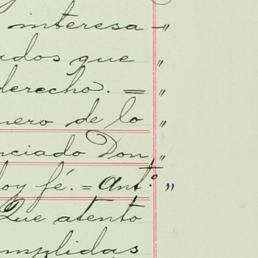 interesa- "
ados que "
derecho. = "
nero de lo "
nciado Don "
doy fé. = Ant.º "
Que atento
mplidas